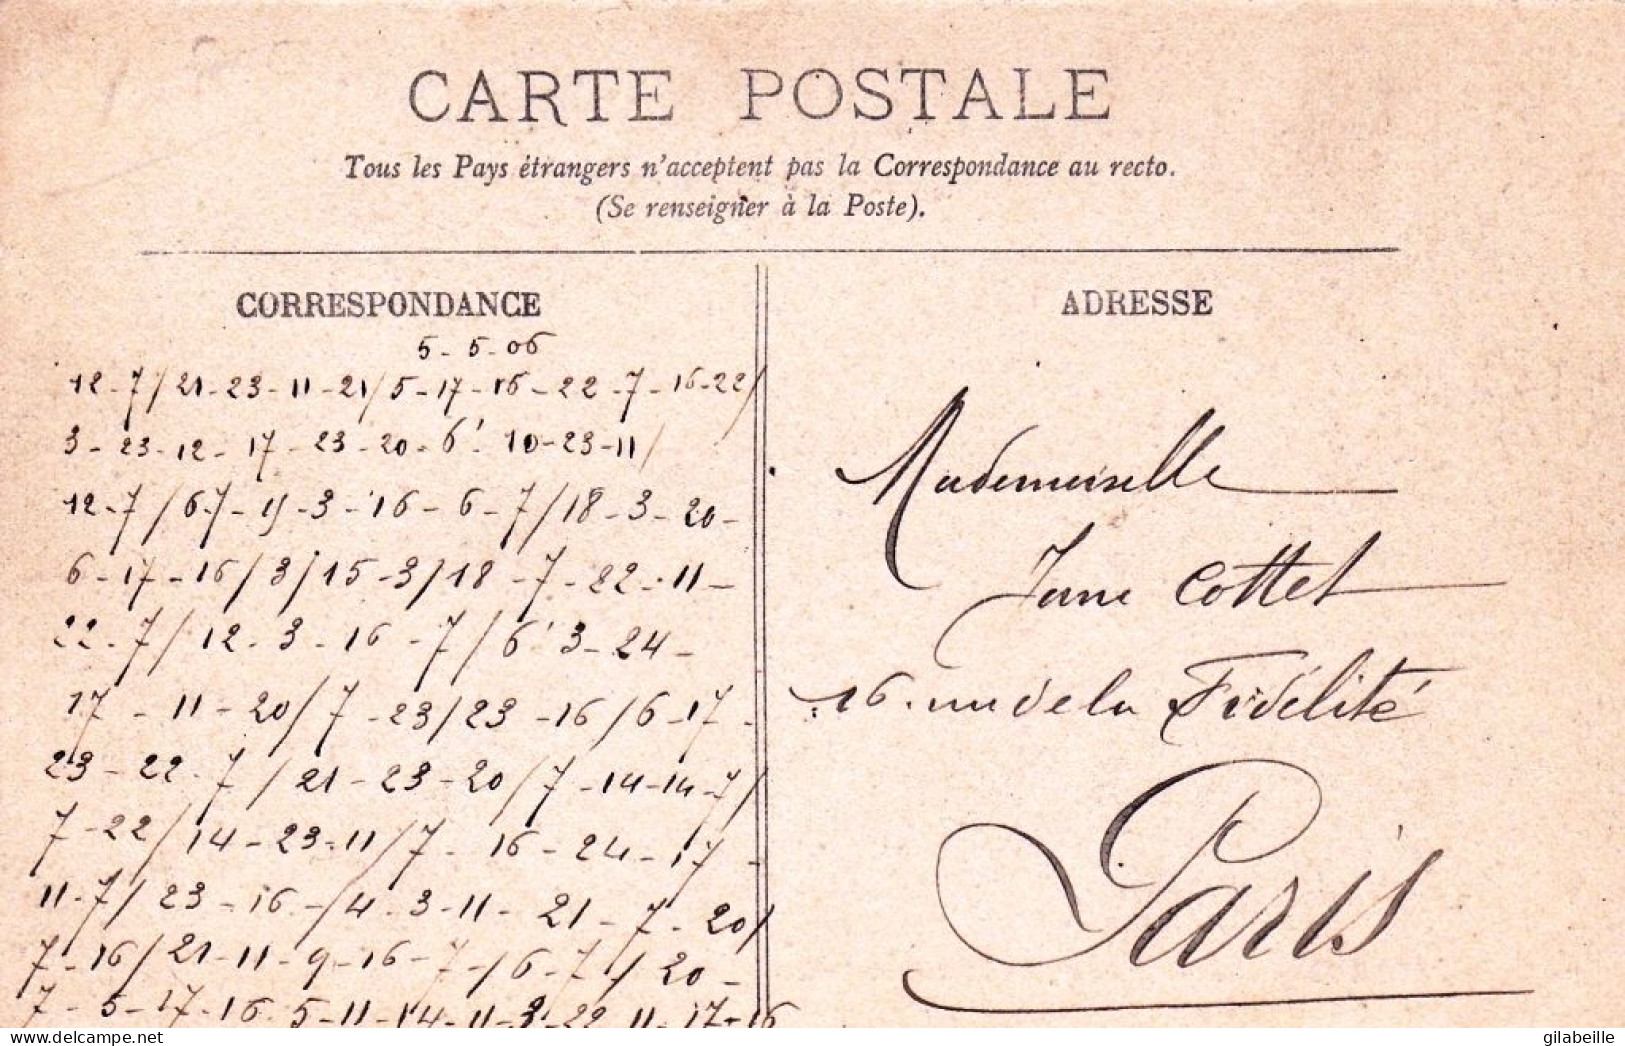 CARTE POSTALE
Tous les Pays étrangers n'acceptent pas la Correspondance au recto.
(Se renseigner à la Poste).
CORRESPONDANCE
5-5-06
12-7/21-23-11-21/5-17-16-22-7-16-22/
3-23-12-17-23-20-6' 10-23-11/
12-7/6-7-15-3-16-6-7/18-3-20-
6-17-16/3/15-3/18-7-22-11-
22-7/12-3-16-7/6'3-24-
17-11-20/7-23/23-16/6-17-
23-22-7/21-23-20/7-14-14-7/
7-22/14-23-11/7-16-24-17-
11-7/23-16-/4-3-11-21-7-20/
7-16/21-11-9-16-7-/6-7/20-
7-5-17-16-5-11-14-11-3-22-11-17-16
ADRESSE
Mademoiselle
Jane Cottet
16. rue de la Fidélité
Paris
gilabeille